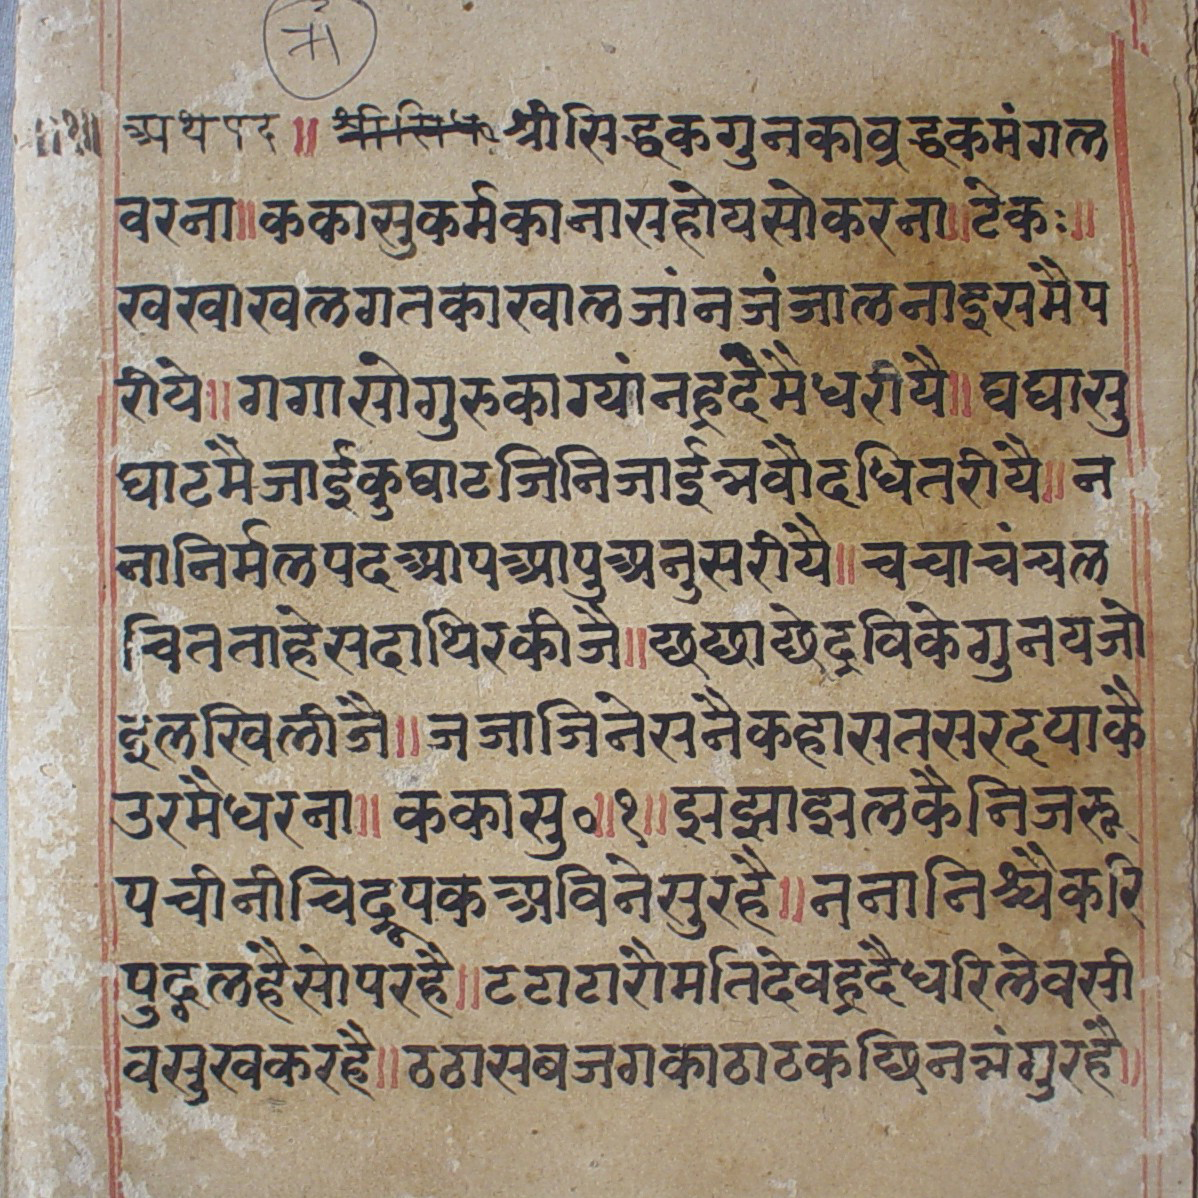 ॥१॥ अथपद ॥ श्रीसिध श्रीसिद्धकगुनकावृद्धकमंगल
वरना॥ककासुकर्मकानासहोयसोकरना॥टेकः॥
खखाखलगतकाखालजांनजंजालनाइसमैप
रीये॥गगासोगुरुकाग्यांनहृदैमैधरीयै॥घघासु
घाटमैजाईकुघाटजिनिजाईभवौदधितरीयै॥न
नानिर्मलपदआपआपुअनुसरीयै॥चचाचंचल
चितताहेसदाथिरकीजै॥छछाछेद्रविकेगुनयजो
इलखिलीजै॥जजाजिनेसनैकहासतसरदयाकै
उरमैधरना॥ककासु०॥१॥झझाझलकैनिजरू
पचीनीचिद्रूपकअविनेसुरहै॥ननानिश्चैकरि
पुद्गलहैसोपरहै॥टटाटारौमतिदेवहृदैधरिलेवसी
वसुखकरहै॥ठठासबजगकाठाठकछिनभंगुरहै॥